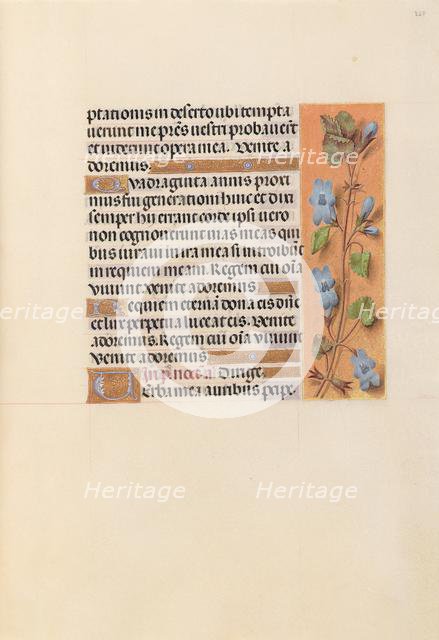 ptationis in deserto ubi tempta
uerunt me pr̃es uestri probauerũt
et uiderunt opera mea. Venite a
doremus.
Quadraginta annis proxi
mus fui generationi huic et dixi
semper hii errant corde ipsi uero
non cognouerunt uias meas qui
bus iuraui in ira mea si introibũt
in requiem meam. Regem cui oĩa
uiuunt. Venite adoremus
Requiem eternã dona eis dñe
et lux perpetua luceat eis. Venite
adoremus. Regem cui oĩa uiuunt
Venite adoremus
Dirige.
Verba mea auribus pcipe.
Heritage
Heritage
Heritage
Heritage
Heritage
Heritage
Heritage